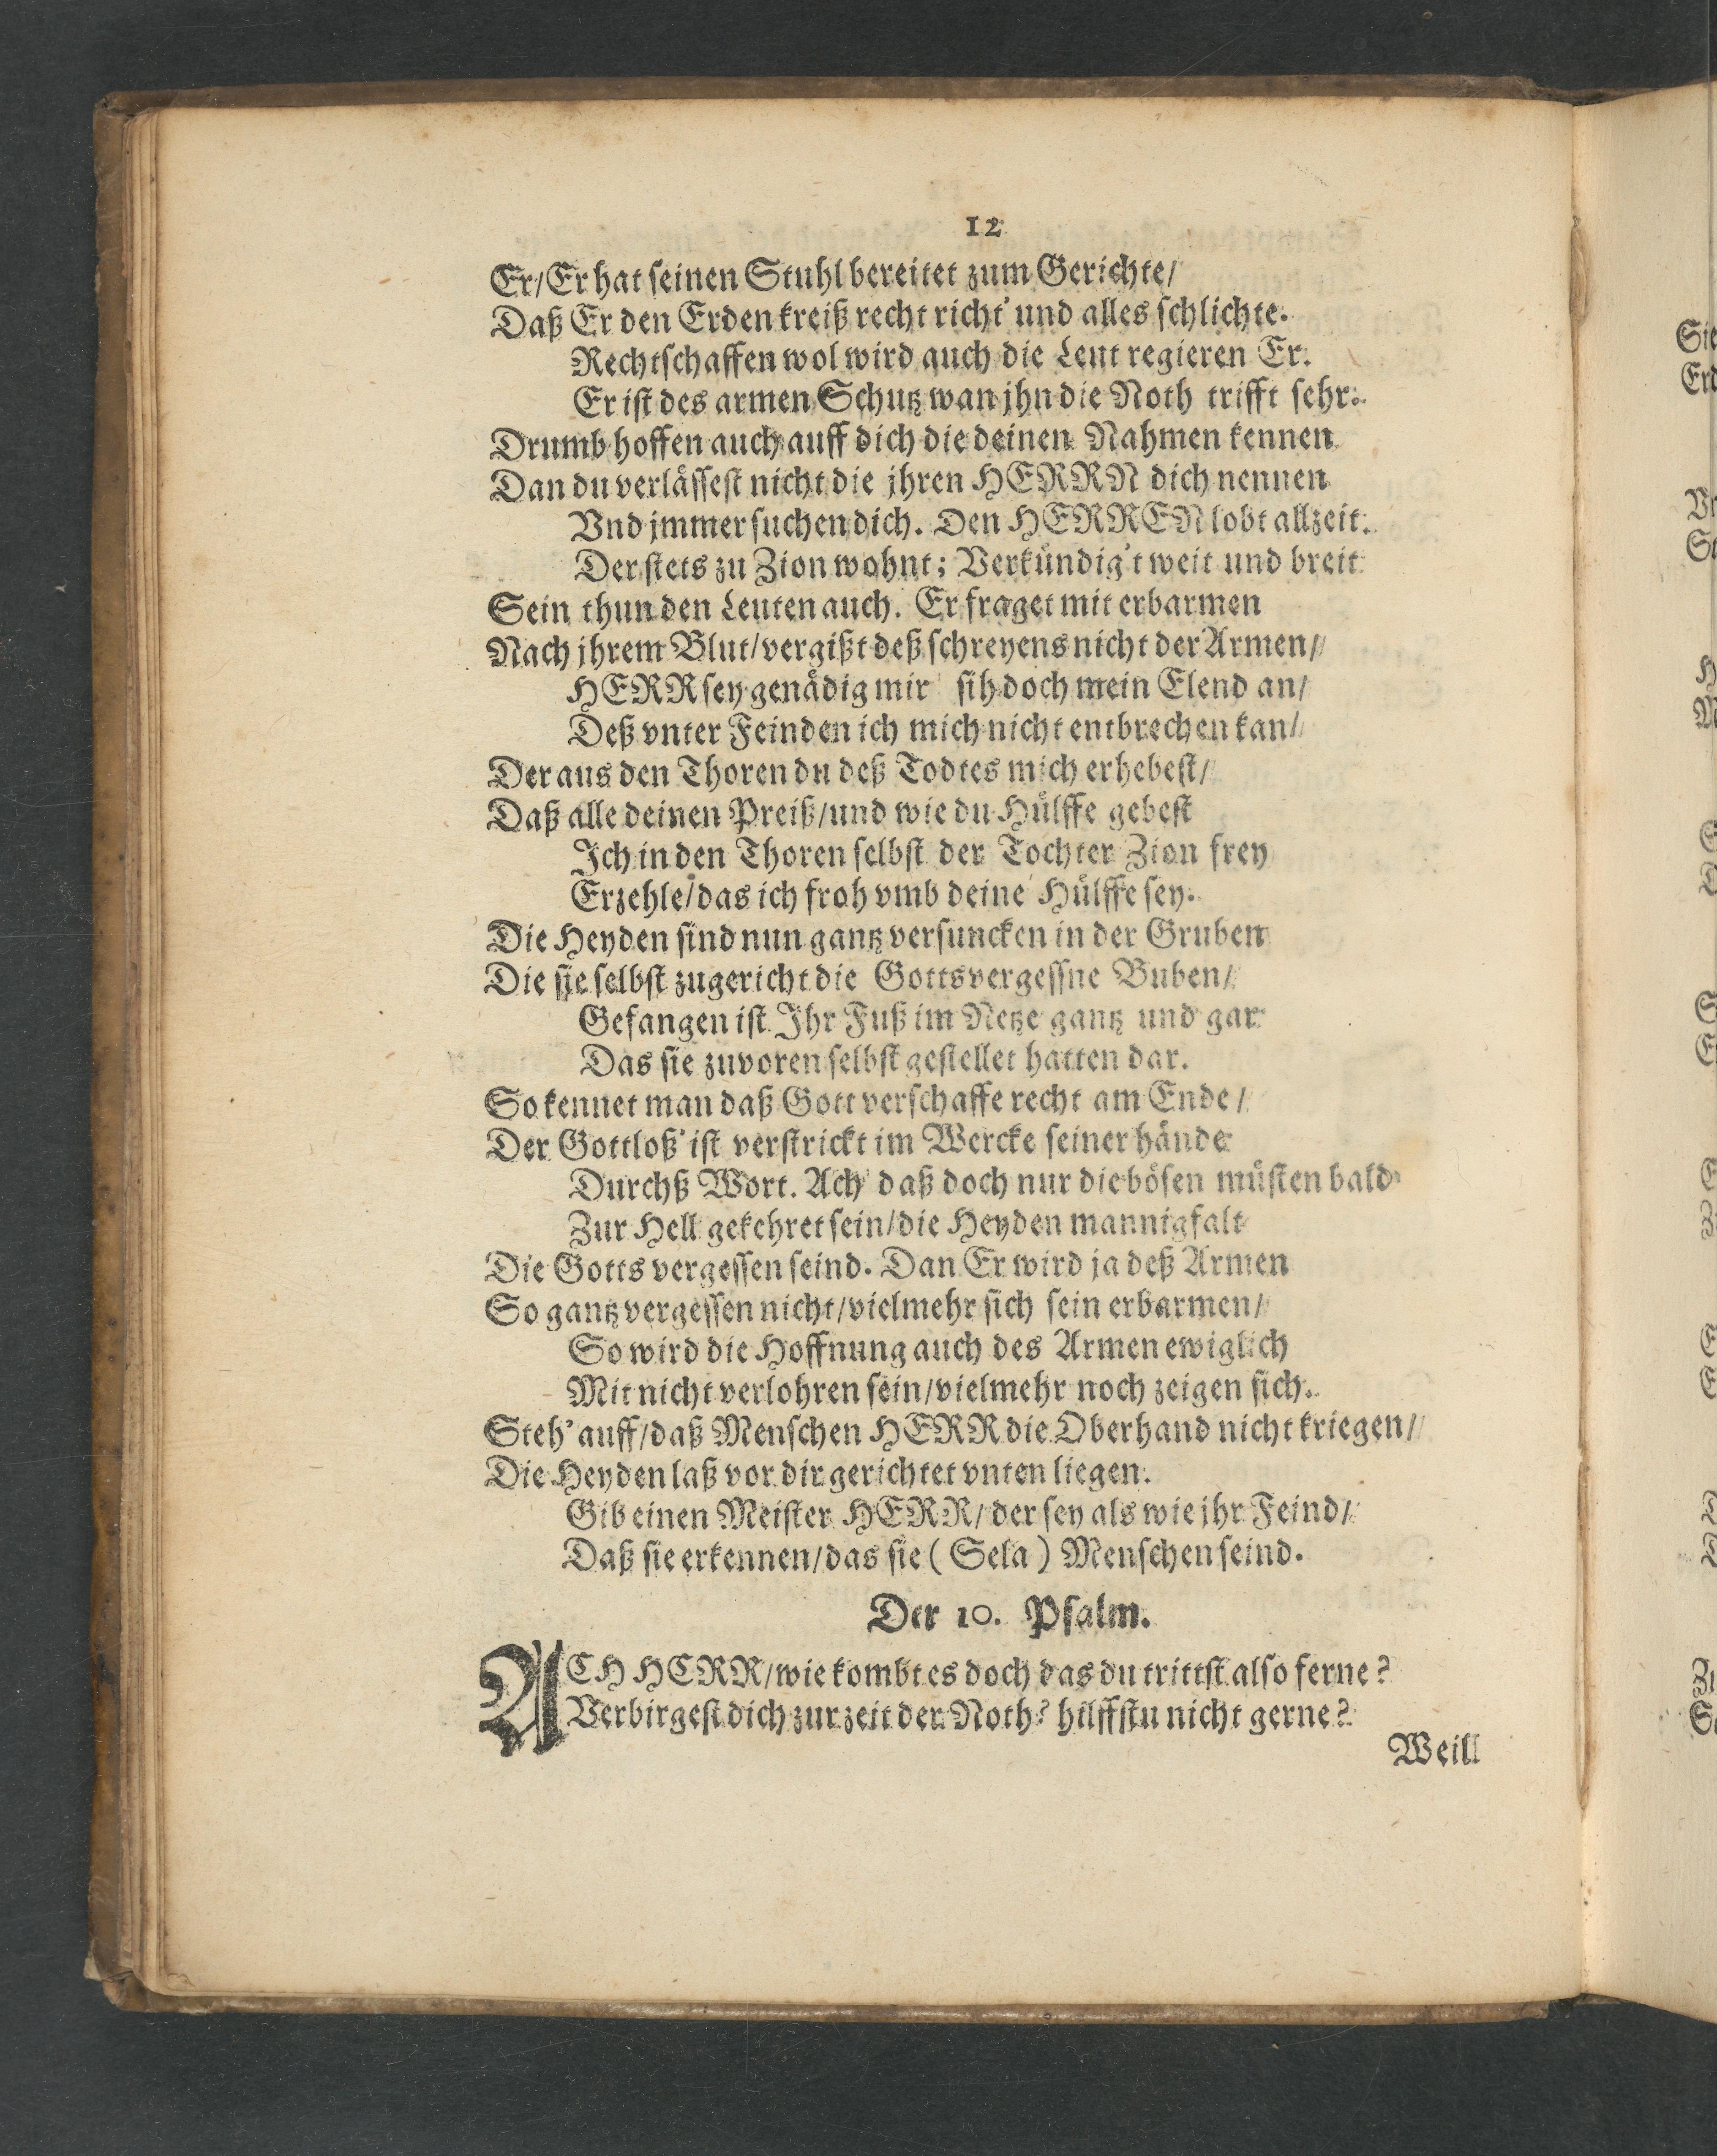 12
Er/Er hat seinen Stuhl bereitet zum Gerichte/
Daß Er den Erdenkreiß recht richt' und alles schlichte.
Rechtschaffen wol wird auch die Leut regieren Er.
Er ist des armen Schutz wan jhn die Noth trifft sehr.
Drumb hoffen auch auff dich die deinen Nahmen kennen
Dan du verlässest nicht die jhren HERRN dich nennen
Vnd jmmer suchen dich. Den HERREN lobt allzeit.
Der stets zu Zion wohnt; Verkündig't weit und breit
Sein thun den Leuten auch. Er fraget mit erbarmen
Nach jhrem Blut/vergißt deß schreyens nicht der Armen/
HERR sey genädig mir sih doch mein Elend an/
Deß vnter Feinden ich mich nicht entbrechen kan/
Der aus den Thoren du deß Todtes mich erhebest/
Daß alle deinen Preiß/und wie du Hülffe gebest
Ich in den Thoren selbst der Tochter Zion frey
Erzehle/das ich froh vmb deine Hülffe sey.
Die Heyden sind nun gantz versuncken in der Gruben
Die sie selbst zugericht die Gottsvergessne Buben/
Gefangen ist Ihr Fuß im Netze gantz und gar
Das sie zuvoren selbst gestellet hatten dar.
So kennet man daß Gott verschaffe recht am Ende/
Der Gottloß' ist verstrickt im Wercke seiner hände
Durchß Wort. Ach daß doch nur die bösen müsten bald
Zur Hell gekehret sein/die Heyden mannigfalt
Die Gotts vergessen seind. Dan Er wird ja deß Armen
So gantz vergessen nicht/vielmehr sich sein erbarmen/
So wird die Hoffnung auch des Armen ewiglich
Mit nicht verlohren sein/vielmehr noch zeigen sich.
Steh' auff/daß Menschen HERR die Oberhand nicht kriegen/
Die Heyden laß vor dir gerichtet vnten liegen.
Gib einen Meister HERR/der sey als wie jhr Feind/
Daß sie erkennen/das sie (Sela) Menschen seind.
Der 10. Psalm.
ACH HERR/wie kombt es doch das du trittst also ferne?
Verbirgest dich zur zeit der Noth? hilffstu nicht gerne?
Weill